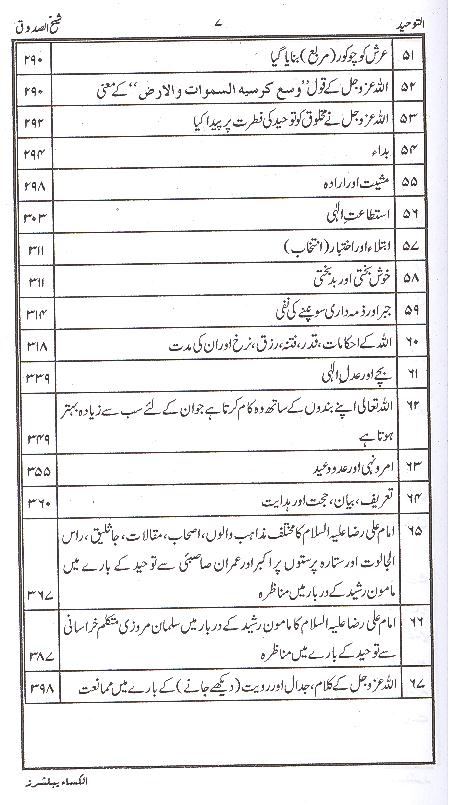 التوحید ۷ شیخ الصدوق
۵۱ عرش کو چوکور (مربع) بنایا گیا ۲۹۰
۵۲ اللہ عزوجل کے قول ”وسع کرسیه السموات والارض“ کے معنی ۲۹۰
۵۳ اللہ عزوجل نے مخلوق کو توحید کی فطرت پر پیدا کیا ۲۹۲
۵۴ بداء ۲۹۴
۵۵ مشیت اور ارادہ ۲۹۸
۵۶ استطاعت الٰہی ۳۰۳
۵۷ ابتلاء اور اختبار (انتخاب) ۳۱۱
۵۸ خوش بختی اور بدبختی ۳۱۱
۵۹ جبر اور ذمہ داری سوپنے کی نفی ۳۱۴
۶۰ اللہ کے احکامات، قدر، فتنہ، رزق، نرخ اور ان کی مدت ۳۱۸
۶۱ بچے اور عدل الٰہی ۳۳۹
۶۲ اللہ تعالیٰ اپنے بندوں کے ساتھ وہ کام کرتا ہے جو ان کے لئے سب سے زیادہ بہتر
ہوتا ہے ۳۴۹
۶۳ امر و نہی اور عدو وعید ۳۵۵
۶۴ تعریف، بیان، حجت اور ہدایت ۳۶۰
۶۵ امام علی رضا علیہ السلام کا مختلف مذاہب والوں، اصحاب، مقالات، جاثلیق، راس
الجالوت اور ستارہ پرستوں پر اکبر اور عمران صاصبئی سے توحید کے بارے میں
مامون رشید کے دربار میں مناظرہ ۳۶۷
۶۶ امام علی رضا علیہ السلام کا مامون رشید کے دربار میں سلمان مروزی متکلم خراسانی
سے توحید کے بارے میں مناظرہ ۳۸۷
۶۷ اللہ عزوجل کے کلام، جدال اور رویت (دیکھے جانے) کے بارے میں ممانعت ۳۹۸
الکساء پبلشرز